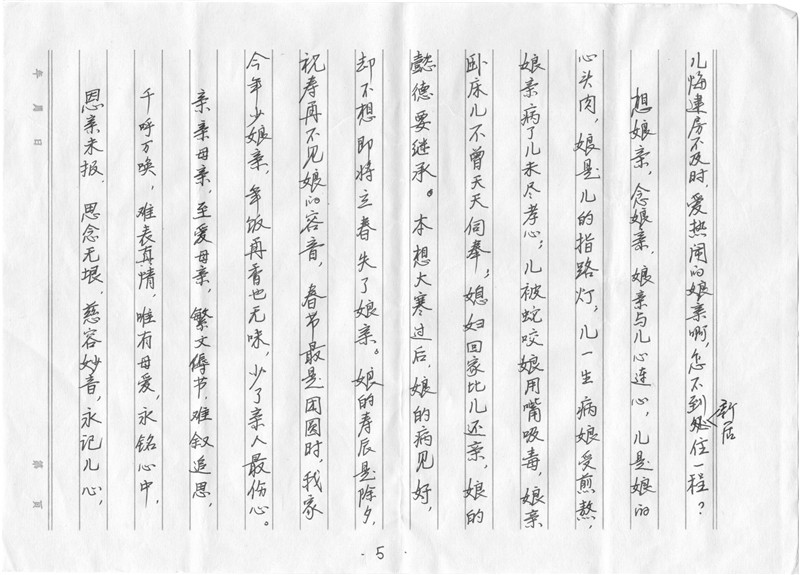 儿悔建房不及时,爱热闹的娘亲啊,怎不到新居住一程?
想娘亲,念娘亲,娘亲与儿心连心,儿是娘的
心头肉,娘是儿的指路灯,儿一生病娘受煎熬,
娘亲病了儿未尽孝心;儿被蛇咬娘用嘴吸毒,娘亲
卧床儿不曾天天伺奉;媳妇回家比儿还亲,娘的
懿德要继承。本想大寒过后,娘的病见好,
却不想即将立春失了娘亲。娘的寿辰是除夕,
祝寿再不见娘的容音,春节最是团圆时,我家
今年少娘亲,年饭再香也无味,少了亲人最伤心。
亲亲母亲,至爱母亲,繁文缛节,难叙追思,
千呼万唤,难表真情,唯有母爱,永铭心中,
恩亲未报,思念无垠,慈容妙音,永记儿心,
年月日
第页
·5·